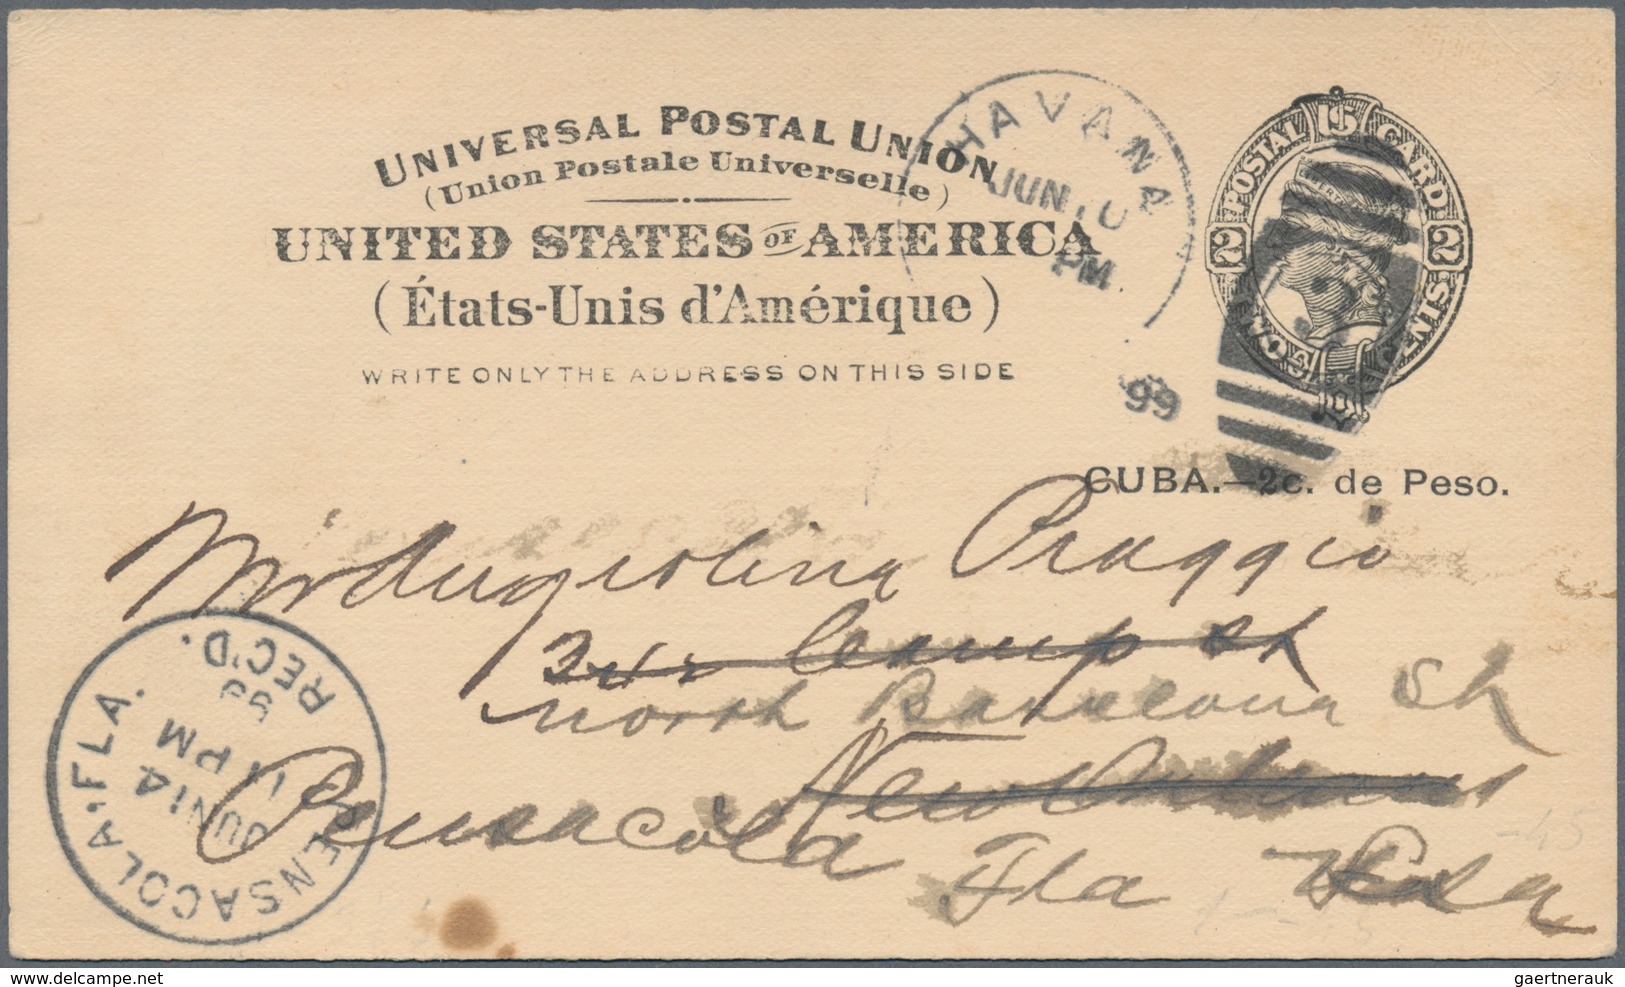 UNIVERSAL POSTAL UNION
(Union Postale Universelle)
UNITED STATES OF AMERICA
(États-Unis d'Amérique)
WRITE ONLY THE ADDRESS ON THIS SIDE
HAVANA
JUN
PM
99
POSTAL CARD
2 2
CUBA.—2c. de Peso.
Praggio
Camp St
North Barcelona St
New Orleans
Pensacola Fla
PENSACOLA, FLA.
JUN 14
11 PM
99
REC'D.
-45
delcampe.net
gaertnerauk